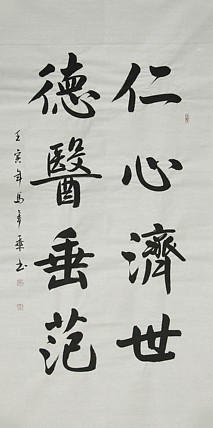 仁心濟世
德醫垂范
壬寅年馬季乘书